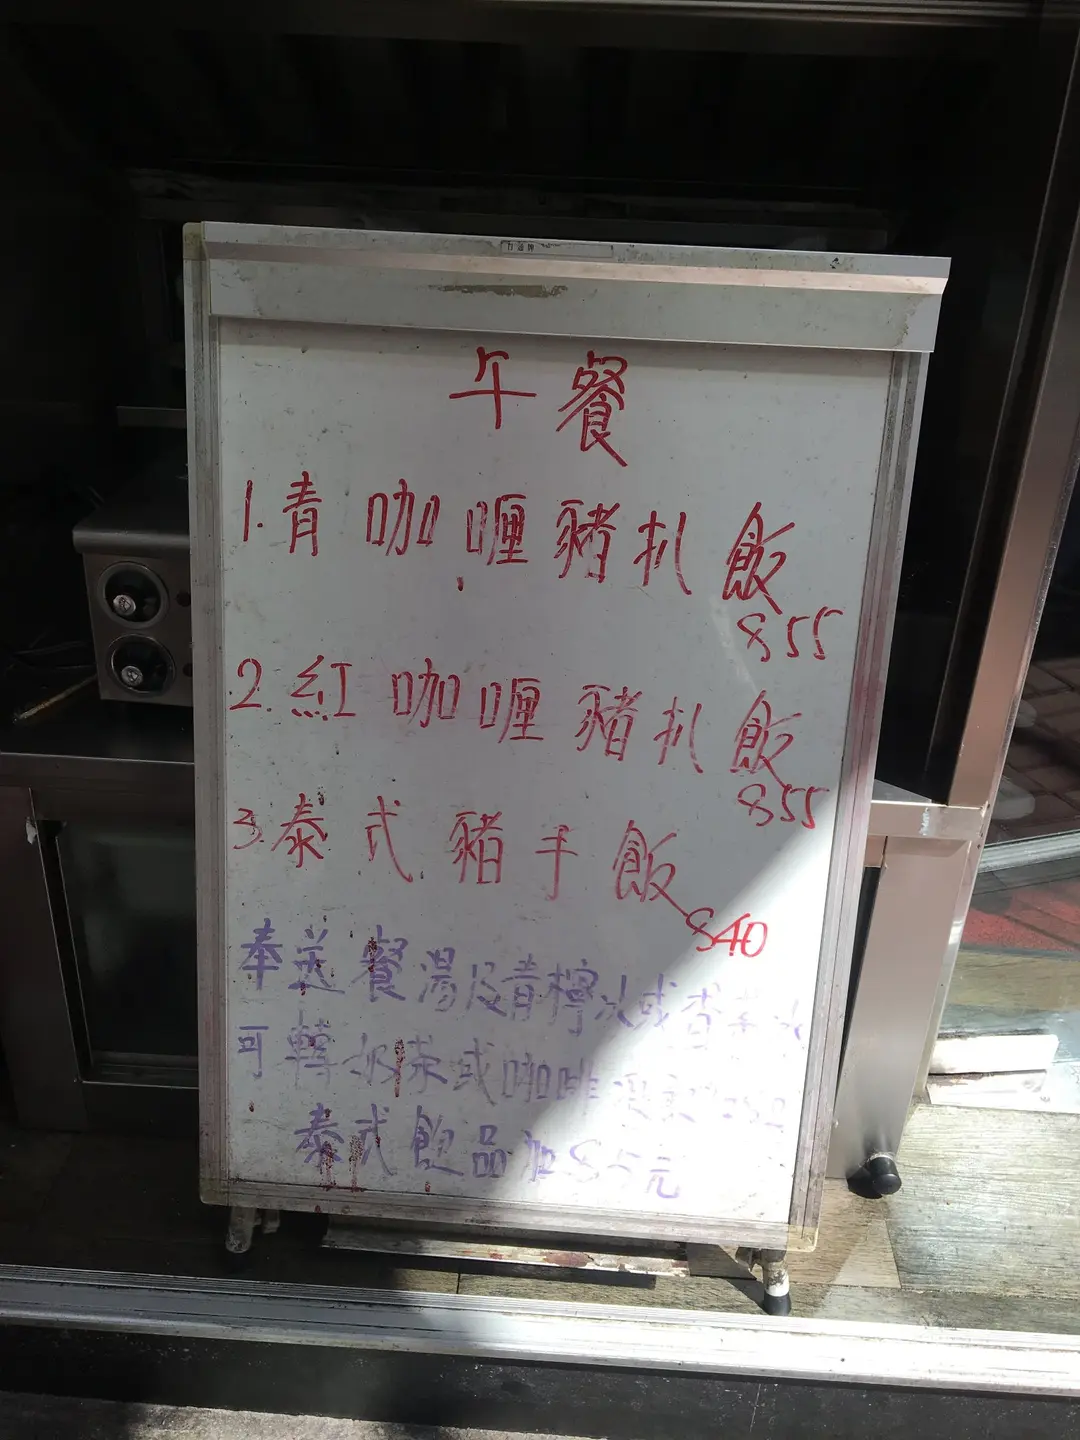 午餐
1.青咖喱豬扒飯
$55
2.紅咖喱豬扒飯
$55
3.泰式豬手飯
$40
奉送餐湯及青檸水或香茅水
可轉奶茶或咖啡
泰式飲品加$5元